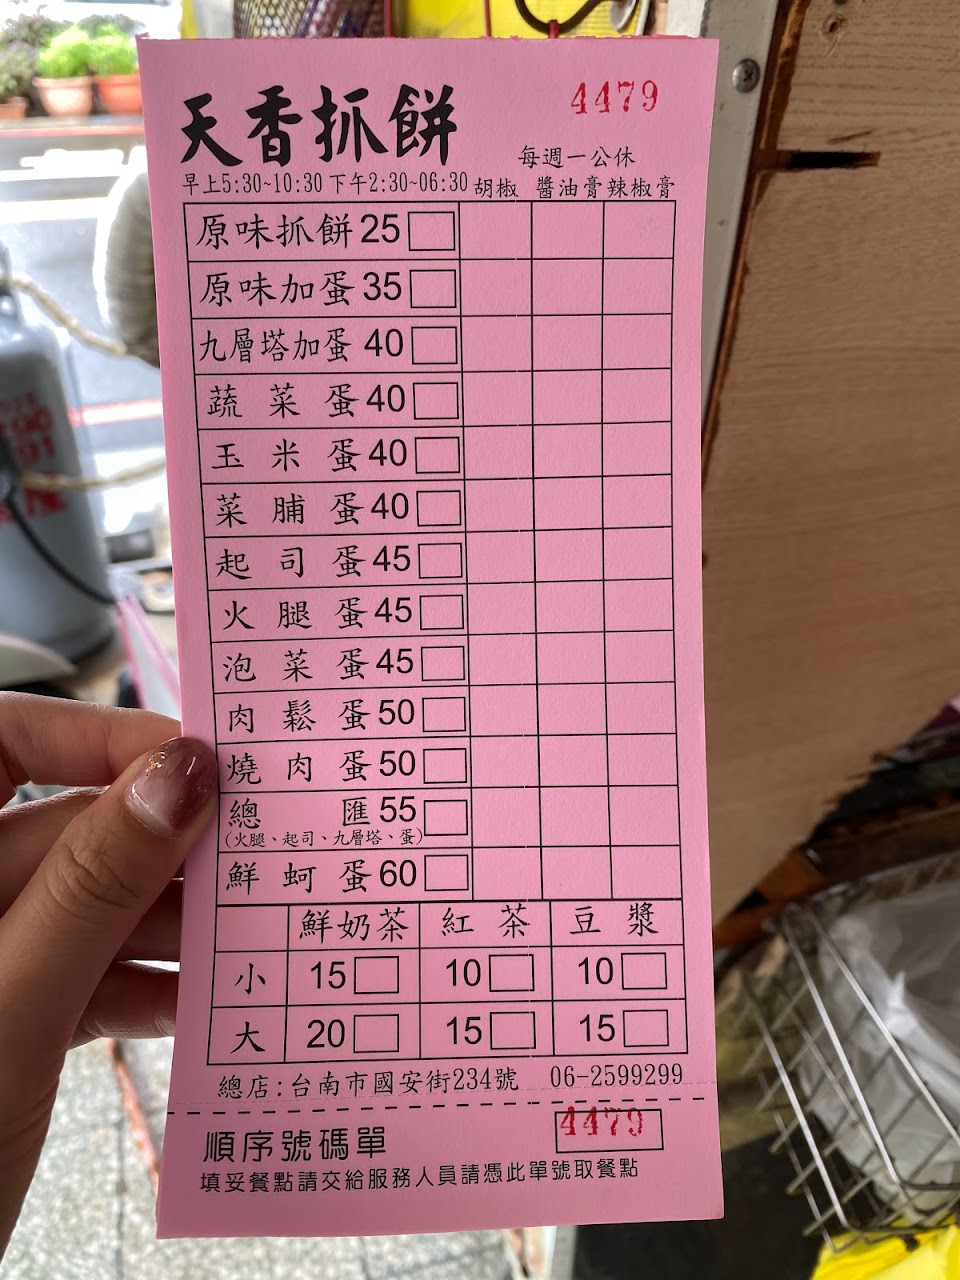 天香抓餅 4479
每週一公休
早上5:30~10:30 下午2:30~06:30 胡椒 醬油膏 辣椒膏
原味抓餅 25
原味加蛋 35
九層塔加蛋 40
蔬菜蛋 40
玉米蛋 40
菜脯蛋 40
起司蛋 45
火腿蛋 45
泡菜蛋 45
肉鬆蛋 50
燒肉蛋 50
總匯 55
(火腿、起司、九層塔、蛋)
鮮蚵蛋 60
鮮奶茶 紅茶 豆漿
小 15 10 10
大 20 15 15
總店:台南市國安街234號 06-2599299
順序號碼單 4479
填妥餐點請交給服務人員請憑此單號取餐點